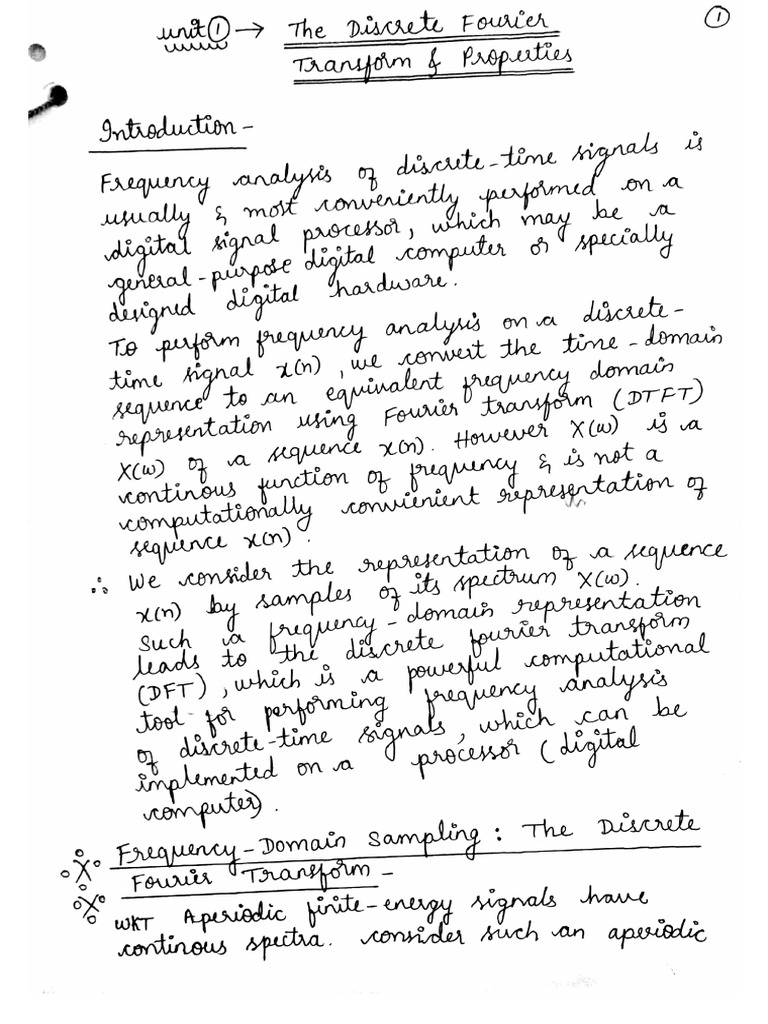 unit ① → The Discrete Fourier
①
Transform & Properties
Introduction -
Frequency analysis of discrete-time signals is
usually & most conveniently performed on a
digital signal processor, which may be a
general-purpose digital computer or specially
designed digital hardware.
To perform frequency analysis on a discrete-
time signal x(n), we convert the time-domain
sequence to an equivalent frequency domain
representation using Fourier transform (DTFT)
X(ω) of a sequence x(n). However X(ω) is a
continous function of frequency & is not a
computationally convienient representation of
sequence x(n).
∴ We consider the representation of a sequence
x(n) by samples of its spectrum X(ω).
Such a frequency-domain representation
leads to the discrete fourier transform
(DFT), which is a powerful computational
tool for performing frequency analysis
of discrete-time signals, which can be
implemented on a processor (digital
computer).
Frequency-Domain Sampling: The Discrete
Fourier Transform -
WKT Aperiodic finite-energy signals have
continous spectra. consider such an aperiodic